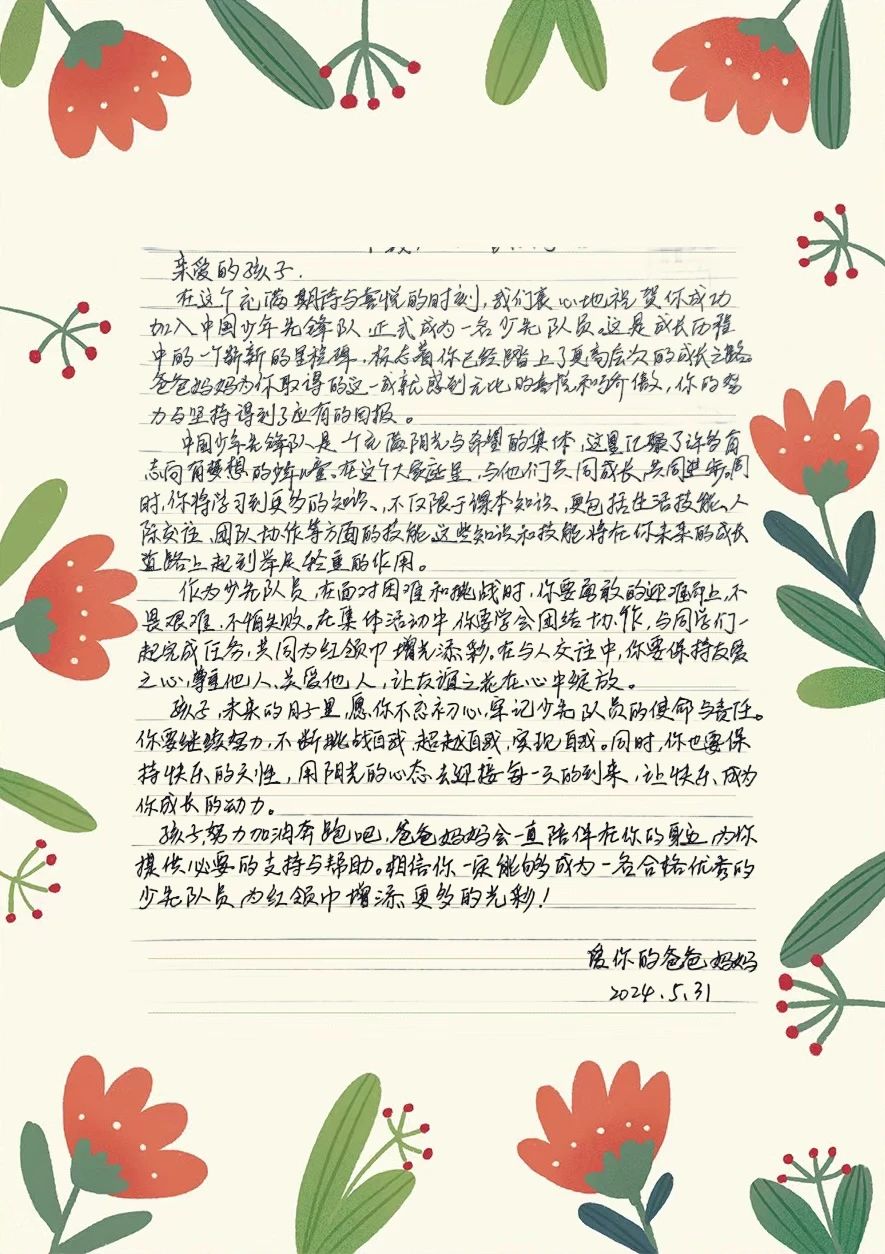 亲爱的孩子.
在这个充满期待与喜悦的时刻,我们衷心地祝贺你成功
加入中国少年先锋队,正式成为一名少先队员。这是成长历程
中的一个崭新的里程碑,标志着你已经踏上了更高层次的成长之路
爸爸妈妈为你取得的这一成就感到无比的喜悦和骄傲,你的努
力与坚持得到了应有的回报。
中国少年先锋队是一个充满阳光与希望的集体,这里汇聚了许多有
志向有梦想的少年儿童。在这个大家庭里,与他们共同成长,共同进步。同
时,你将学习到更多的知识、不仅限于课本知识、更包括生活技能、人
际交往、团队协作等方面的技能,这些知识和技能将在你未来的成长
道路上起到举足轻重的作用。
作为少先队员,在面对困难和挑战时,你要勇敢的迎难而上,不
畏艰难,不怕失败。在集体活动中,你要学会团结协作,与同学们一
起完成任务,共同为红领巾增光添彩。在与人交往中,你要保持友爱
之心,尊重他人、关爱他人,让友谊之花在心中绽放。
孩子,未来的日子里,愿你不忘初心,牢记少先队员的使命与责任。
你要继续努力,不断挑战自我,超越自我,实现自我。同时,你也要保
持快乐的天性,用阳光的心态去迎接每一天的到来,让快乐成为
你成长的动力。
孩子,努力加油奔跑吧,爸爸妈妈会一直陪伴在你的身边,为你
提供必要的支持与帮助。相信你一定能够成为一名合格优秀的
少先队员,为红领巾增添更多的光彩!
爱你的爸爸妈妈
2024.5.31